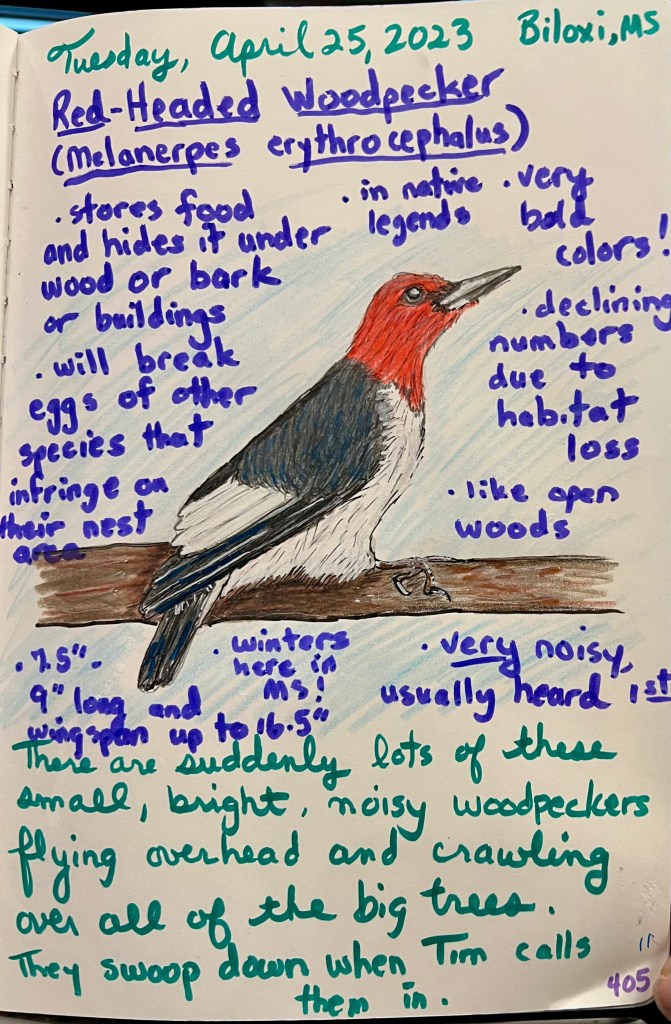 Tuesday, April 25, 2023 Biloxi, MS
Red-Headed Woodpecker
(Melanerpes erythrocephalus)
· stores food
and hides it under
wood or bark
or buildings
· will break
eggs of other
species that
infringe on
their nest
area
· in native
legends
· very
bold
colors!
· declining
numbers
due to
habitat
loss
· like open
woods
· 7.5"-
9" long and
wingspan up to 16.5"
· winters
here in
MS!
· very noisy,
usually heard 1st
There are suddenly lots of these
small, bright, noisy woodpeckers
flying overhead and crawling
over all of the big trees.
They swoop down when Tim calls
them in.
405